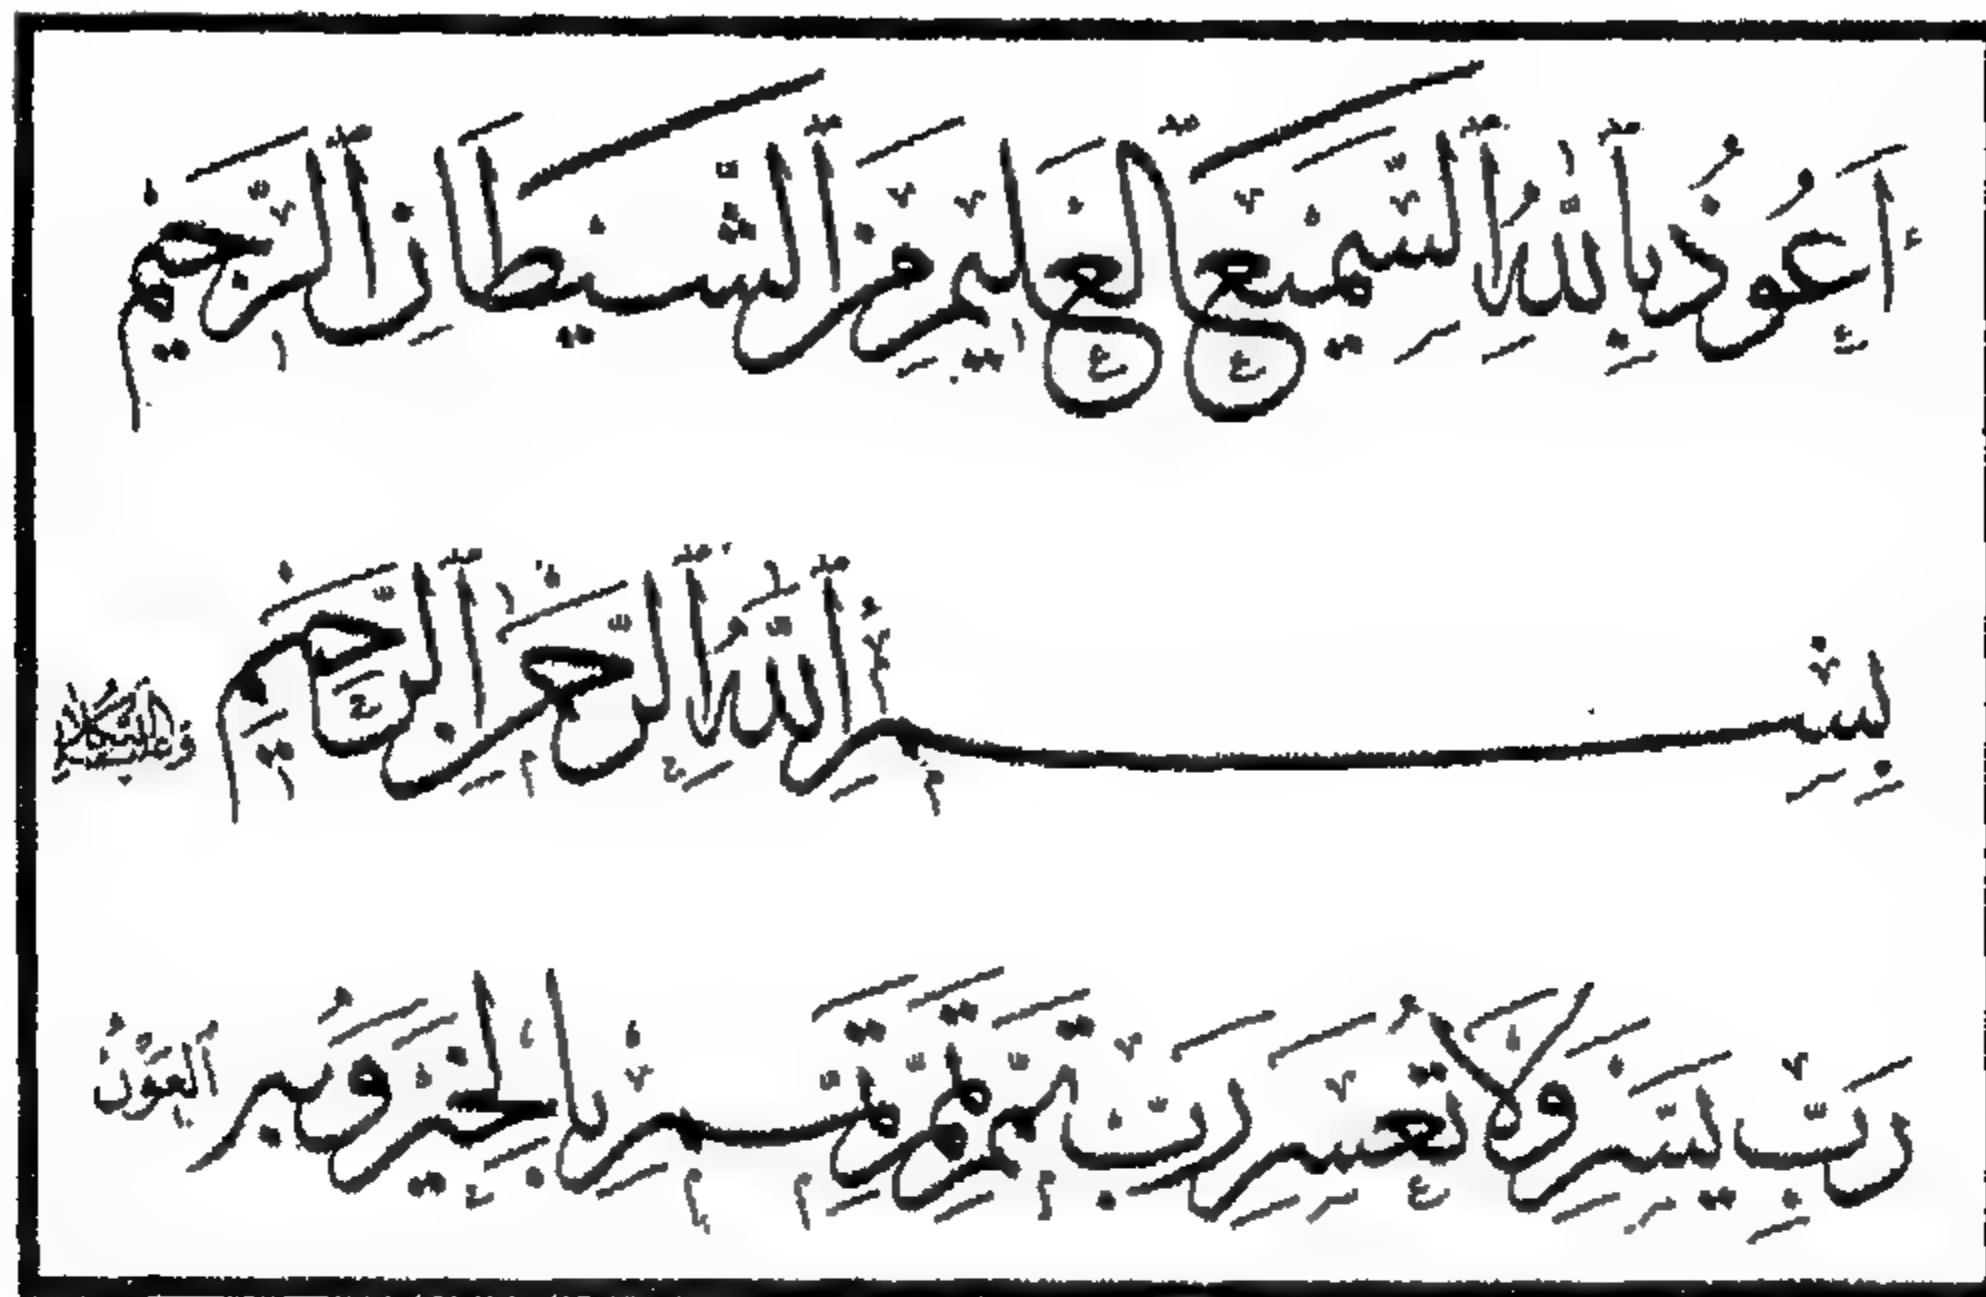 أَعُوذُ بِاللهِ السَّمِيعِ الْعَلِيمِ مِنَ الشَّيْطَانِ الرَّجِيمِ
بِسْمِ اللهِ الرَّحْمٰنِ الرَّحِيمِ وعليه التكلان
رَبِّ يَسِّرْ وَلَا تُعَسِّرْ رَبِّ تَمِّمْ تَمِّمْ تَمِّمْ بِالْخَيْرِ وَبِهِ الْعَوْنُ